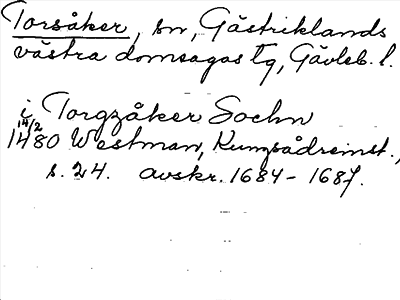 Torsåker, sn, Gästriklands
västra domsagas tg, Gävleb. l.
i Torgzåker Sochn
14/2
1480 Westman, Kungsådreinst.,
s. 24. avskr. 1684-1687.